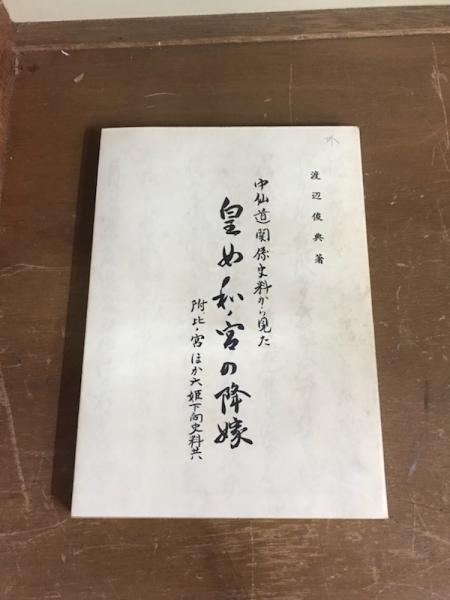 渡辺俊典著
中仙道関係史料から見た
皇女和ノ宮の降嫁
附比ノ宮ほか六姫下向史料共